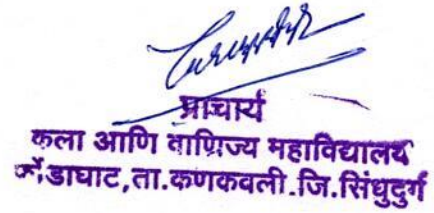 प्राचार्य
कला आणि वाणिज्य महाविद्यालय
फोंडाघाट,ता.कणकवली.जि.सिंधुदुर्ग